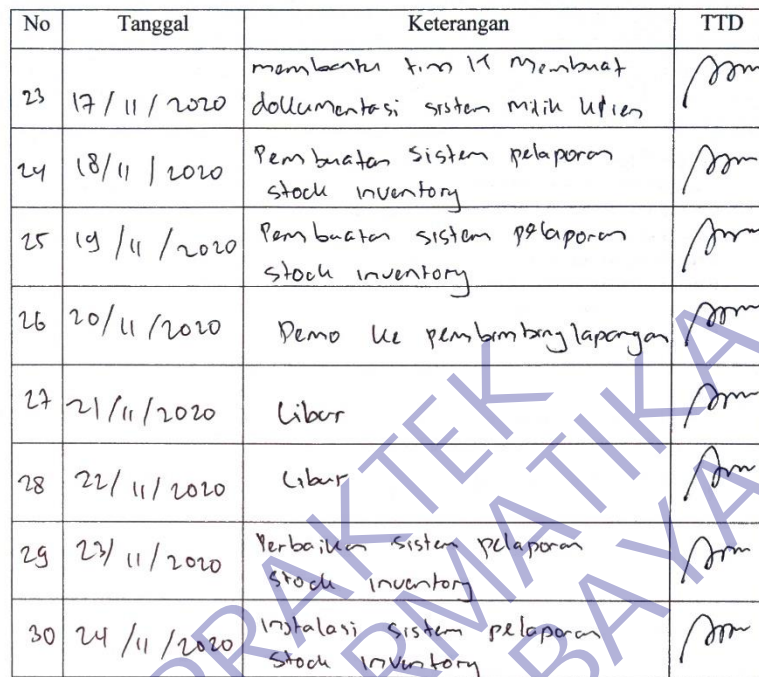 No Tanggal Keterangan TTD
membantu tim IT Membuat
23 17/11/2020 dokumentasi sistem milik klien
24 18/11/2020 Pembuatan sistem pelaporan
stock inventory
25 19/11/2020 Pembuatan sistem pelaporan
stock inventory
26 20/11/2020 Demo ke pembimbing lapangan
27 21/11/2020 Libur
28 22/11/2020 Libur
29 23/11/2020 Perbaikan sistem pelaporan
stock inventory
30 24/11/2020 instalasi sistem pelaporan
stock inventory
PRAKTEK
RMATIKA
BAYA